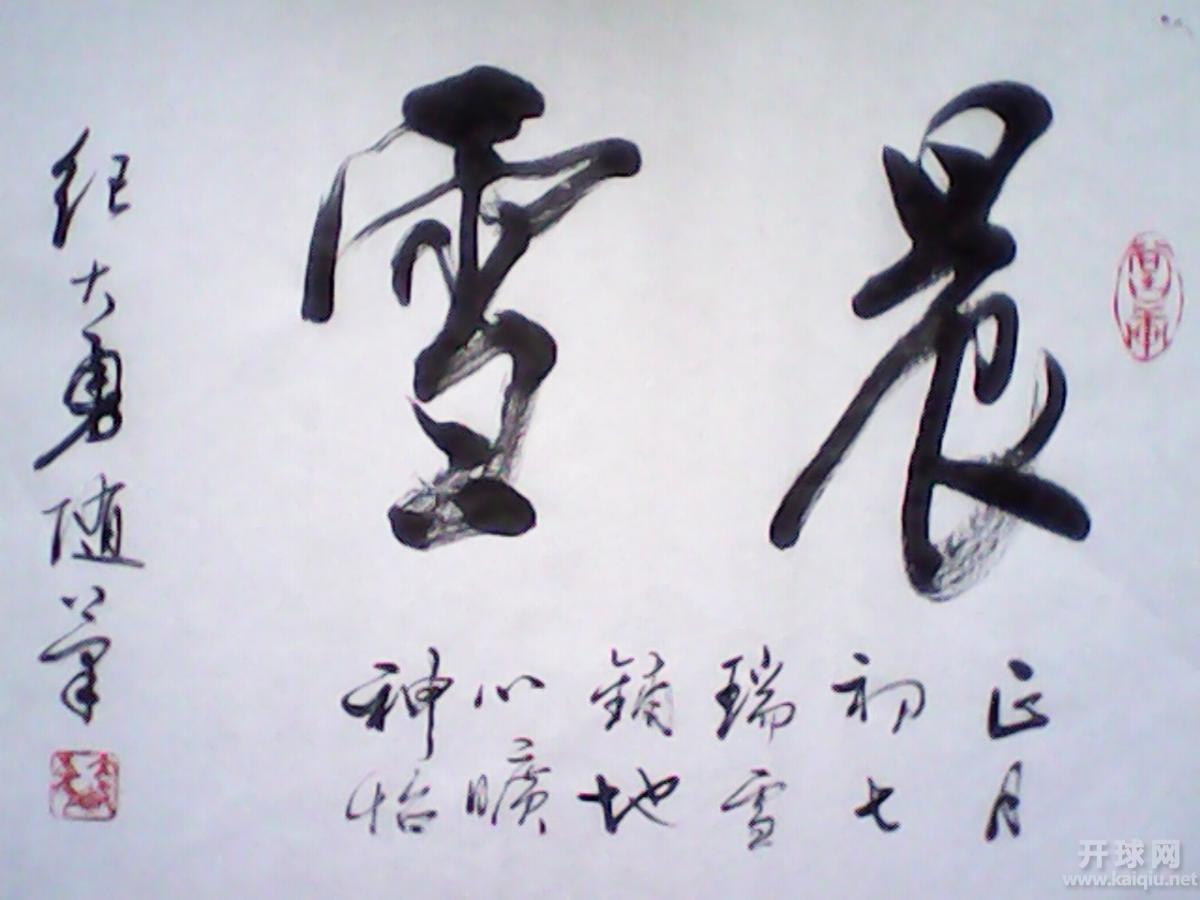 晨雪
正月
初七
瑞雪
鋪地
心曠
神怡
纪大勇随筆
开球网
www.kaiqiu.net